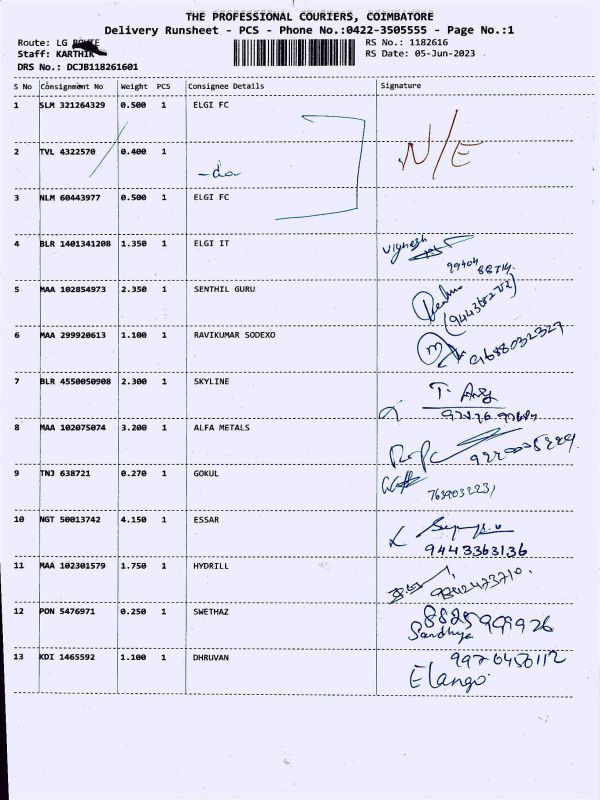 THE PROFESSIONAL COURIERS, COIMBATORE
Delivery Runsheet - PCS - Phone No.:0422-3505555 - Page No.:1
Route: LG ROUTE
RS No.: 1182616
Staff: KARTHIK
RS Date: 05-Jun-2023
DRS No.: DCJB118261601
S No Consignment No Weight PCS Consignee Details Signature
1 SLM 321264329 0.500 1 ELGI FC
N/E
2 TVL 4322570 0.400 1 -do-
3 NLM 60443977 0.500 1 ELGI FC
4 BLR 1401341208 1.350 1 ELGI IT Vignesh
99404
88714
5 MAA 102854973 2.350 1 SENTHIL GURU
6 MAA 299920613 1.100 1 RAVIKUMAR SODEXO
9688032327
7 BLR 4550050908 2.300 1 SKYLINE
8 MAA 102075074 3.200 1 ALFA METALS
9 TNJ 638721 0.270 1 GOKUL
10 NGT 50013742 4.150 1 ESSAR
9443363136
11 MAA 102301579 1.750 1 HYDRILL
9842473710
12 PON 5476971 0.250 1 SWETHAZ
Sandhya
13 KDI 1465592 1.100 1 DHRUVAN
9976450112
Elango